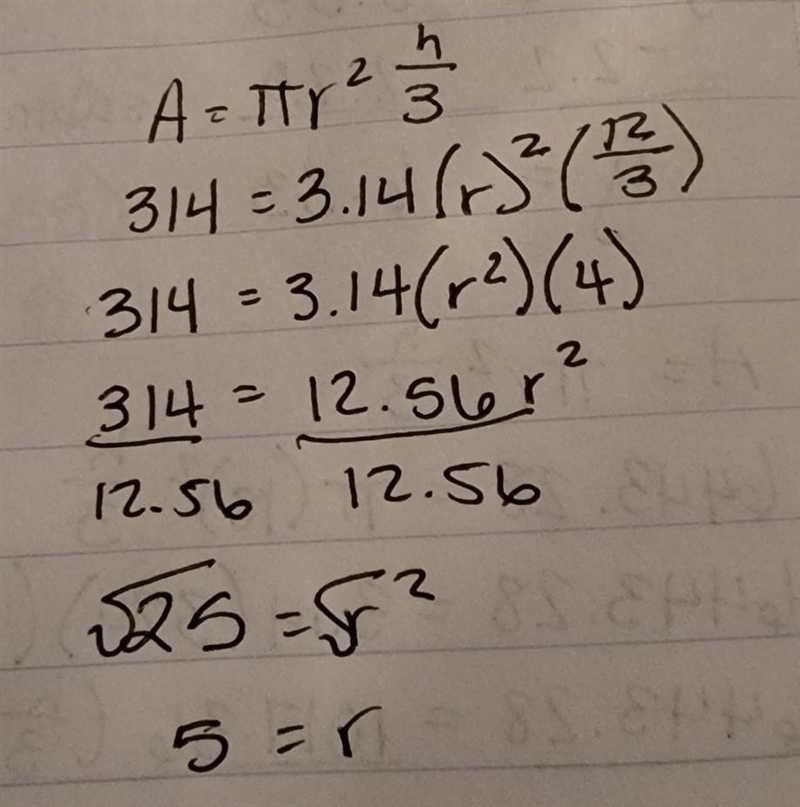 A = πr² h/3
314 = 3.14(r)²(12/3)
314 = 3.14(r²)(4)
314 = 12.56r²
12.56 12.56
√25 = √r²
5 = r